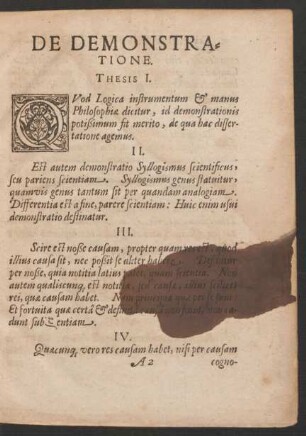 DE DEMONSTRA-
TIONE.
THESIS I.
QVod Logica instrumentum & manus
Philosophiæ dicitur, id demonstrationis
potißimum fit merito, de qua hac disser-
tatione agemus.
II.
Est autem demonstratio Syllogismus scientificus,
seu pariens scientiam. Syllogismus genus statuitur,
quamvis genus tantum sit per quandam analogiam.
Differentia est a fine, parere scientiam: Huic enim usui
demonstratio destinatur.
III.
Scire est nosse causam, propter quam res est, quod
illius causa sit, nec poßit se aliter habere.
per nosse, quia notitia latius patet, quam scientia. Nec
autem qualiscunq, est notitia, sed
rei, quæ causam habet.
Et fortuita quæ certâ &
dunt sub Scientiam.
IV.
Quæcunq, vero res causam habet, nisi per causam
A 2 cogno-